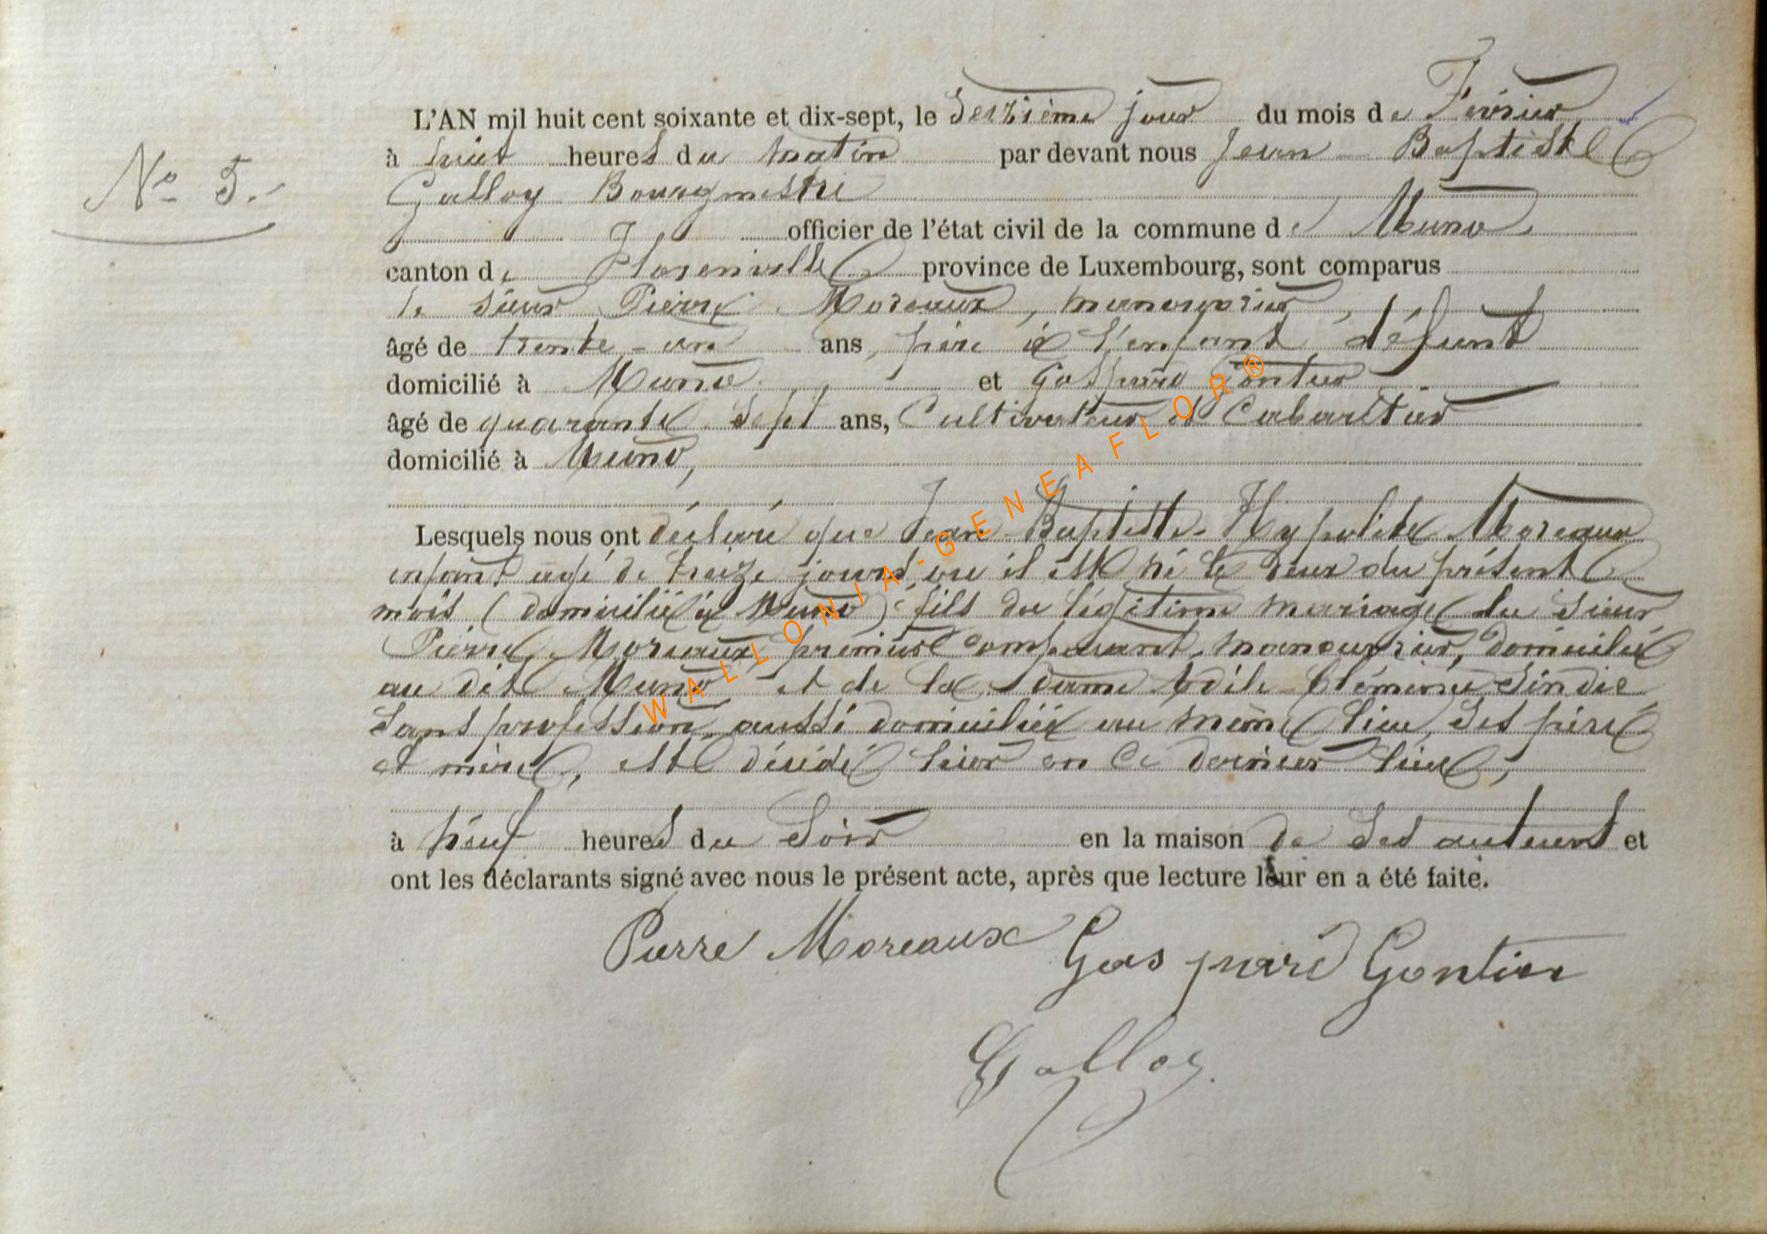 L'AN mil huit cent soixante et dix-sept, le seizième jour du mois de Février
No 5.-
à huit heures du matin par devant nous Jean Baptiste
Galloy Bourgmestre
officier de l'état civil de la commune de Muno.
canton de Florenville province de Luxembourg, sont comparus
le sieur Pierre Moreaux, manouvrier,
âgé de trente-un ans, père à l'enfant défunt
domicilié à Muno, et Gaspard Gontier
âgé de quarante sept ans, Cultivateur et Cabaretier
domicilié à Muno,
Lesquels nous ont déclaré que Jean Baptiste Hypolite Moreaux
enfant agé de treize jours, où il est né le deux du présent
mois (domicilié à Muno) fils du légitime mariage du sieur
Pierre Moreaux premier comparant, manouvrier, domicilié
au dit Muno et de la dame Odile Clémence
sans profession, aussi domiciliée au même lieu, ses père
et mère, est décédé hier en ce dernier lieu,
à neuf heures du soir en la maison de ses auteurs et
ont les déclarants signé avec nous le présent acte, après que lecture leur en a été faite.
Pierre Moreaux Gaspard Gontier
Galloy
WALLONIA-GENEAFLOR®